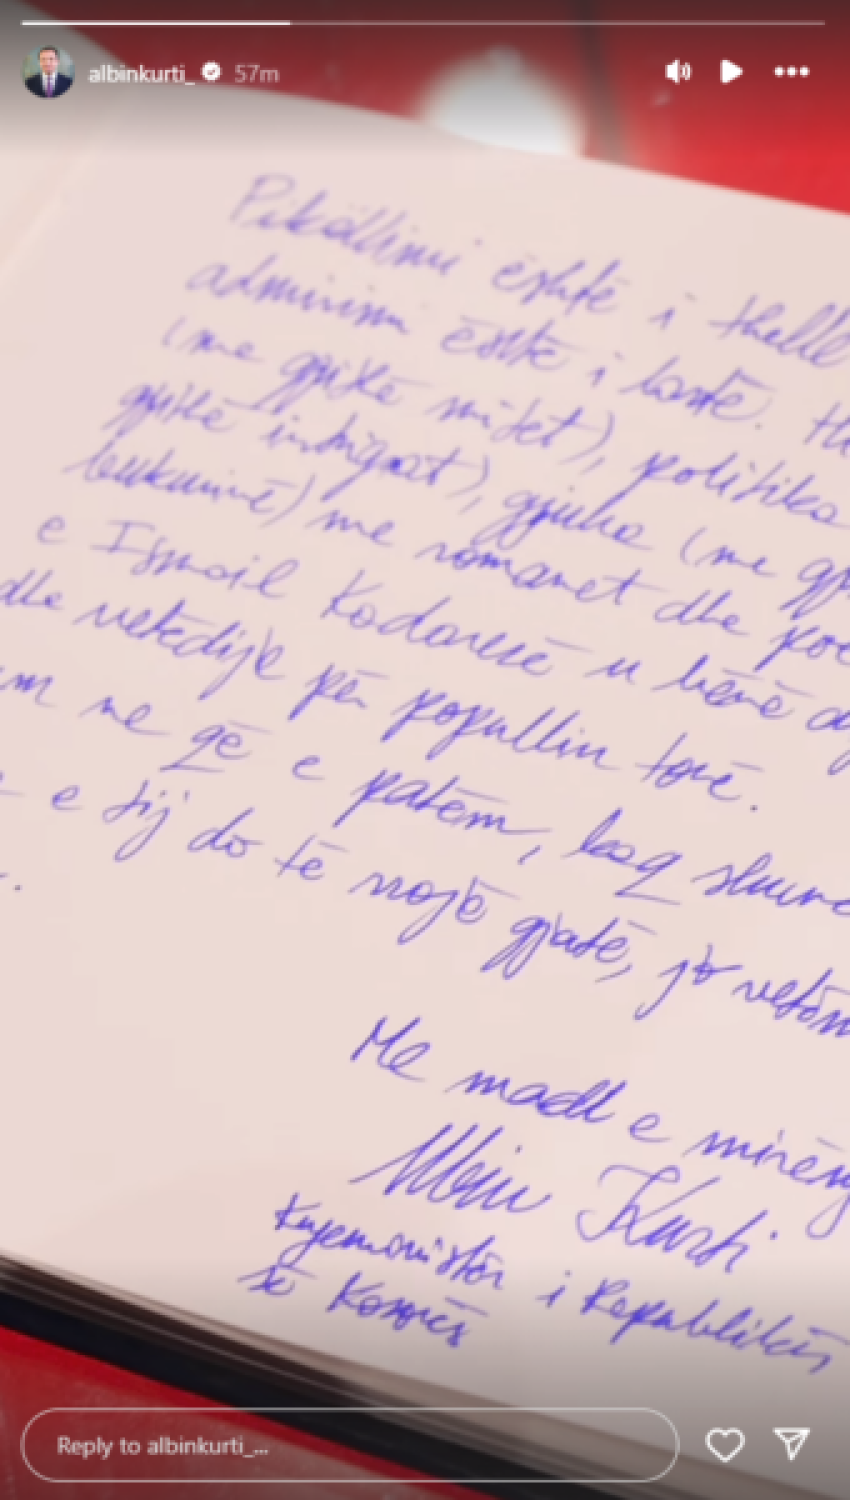 albinkurti_ 57m
Pikëllimi është i thellë
admirimi është i lartë.
(me gjithë mitet), politika
gjithë intrigat), gjuha (me
bukurinë) me romanet dhe
e Ismail Kadaresë u bënë
dhe vetëdije për popullin tonë.
ne që e patëm, kaq shumë
e tij do të rrojë gjatë, jo vetëm
Me madh e mirënj
Albin Kurti
Kryeministër i Republikës
së Kosovës
Reply to albinkurti_...